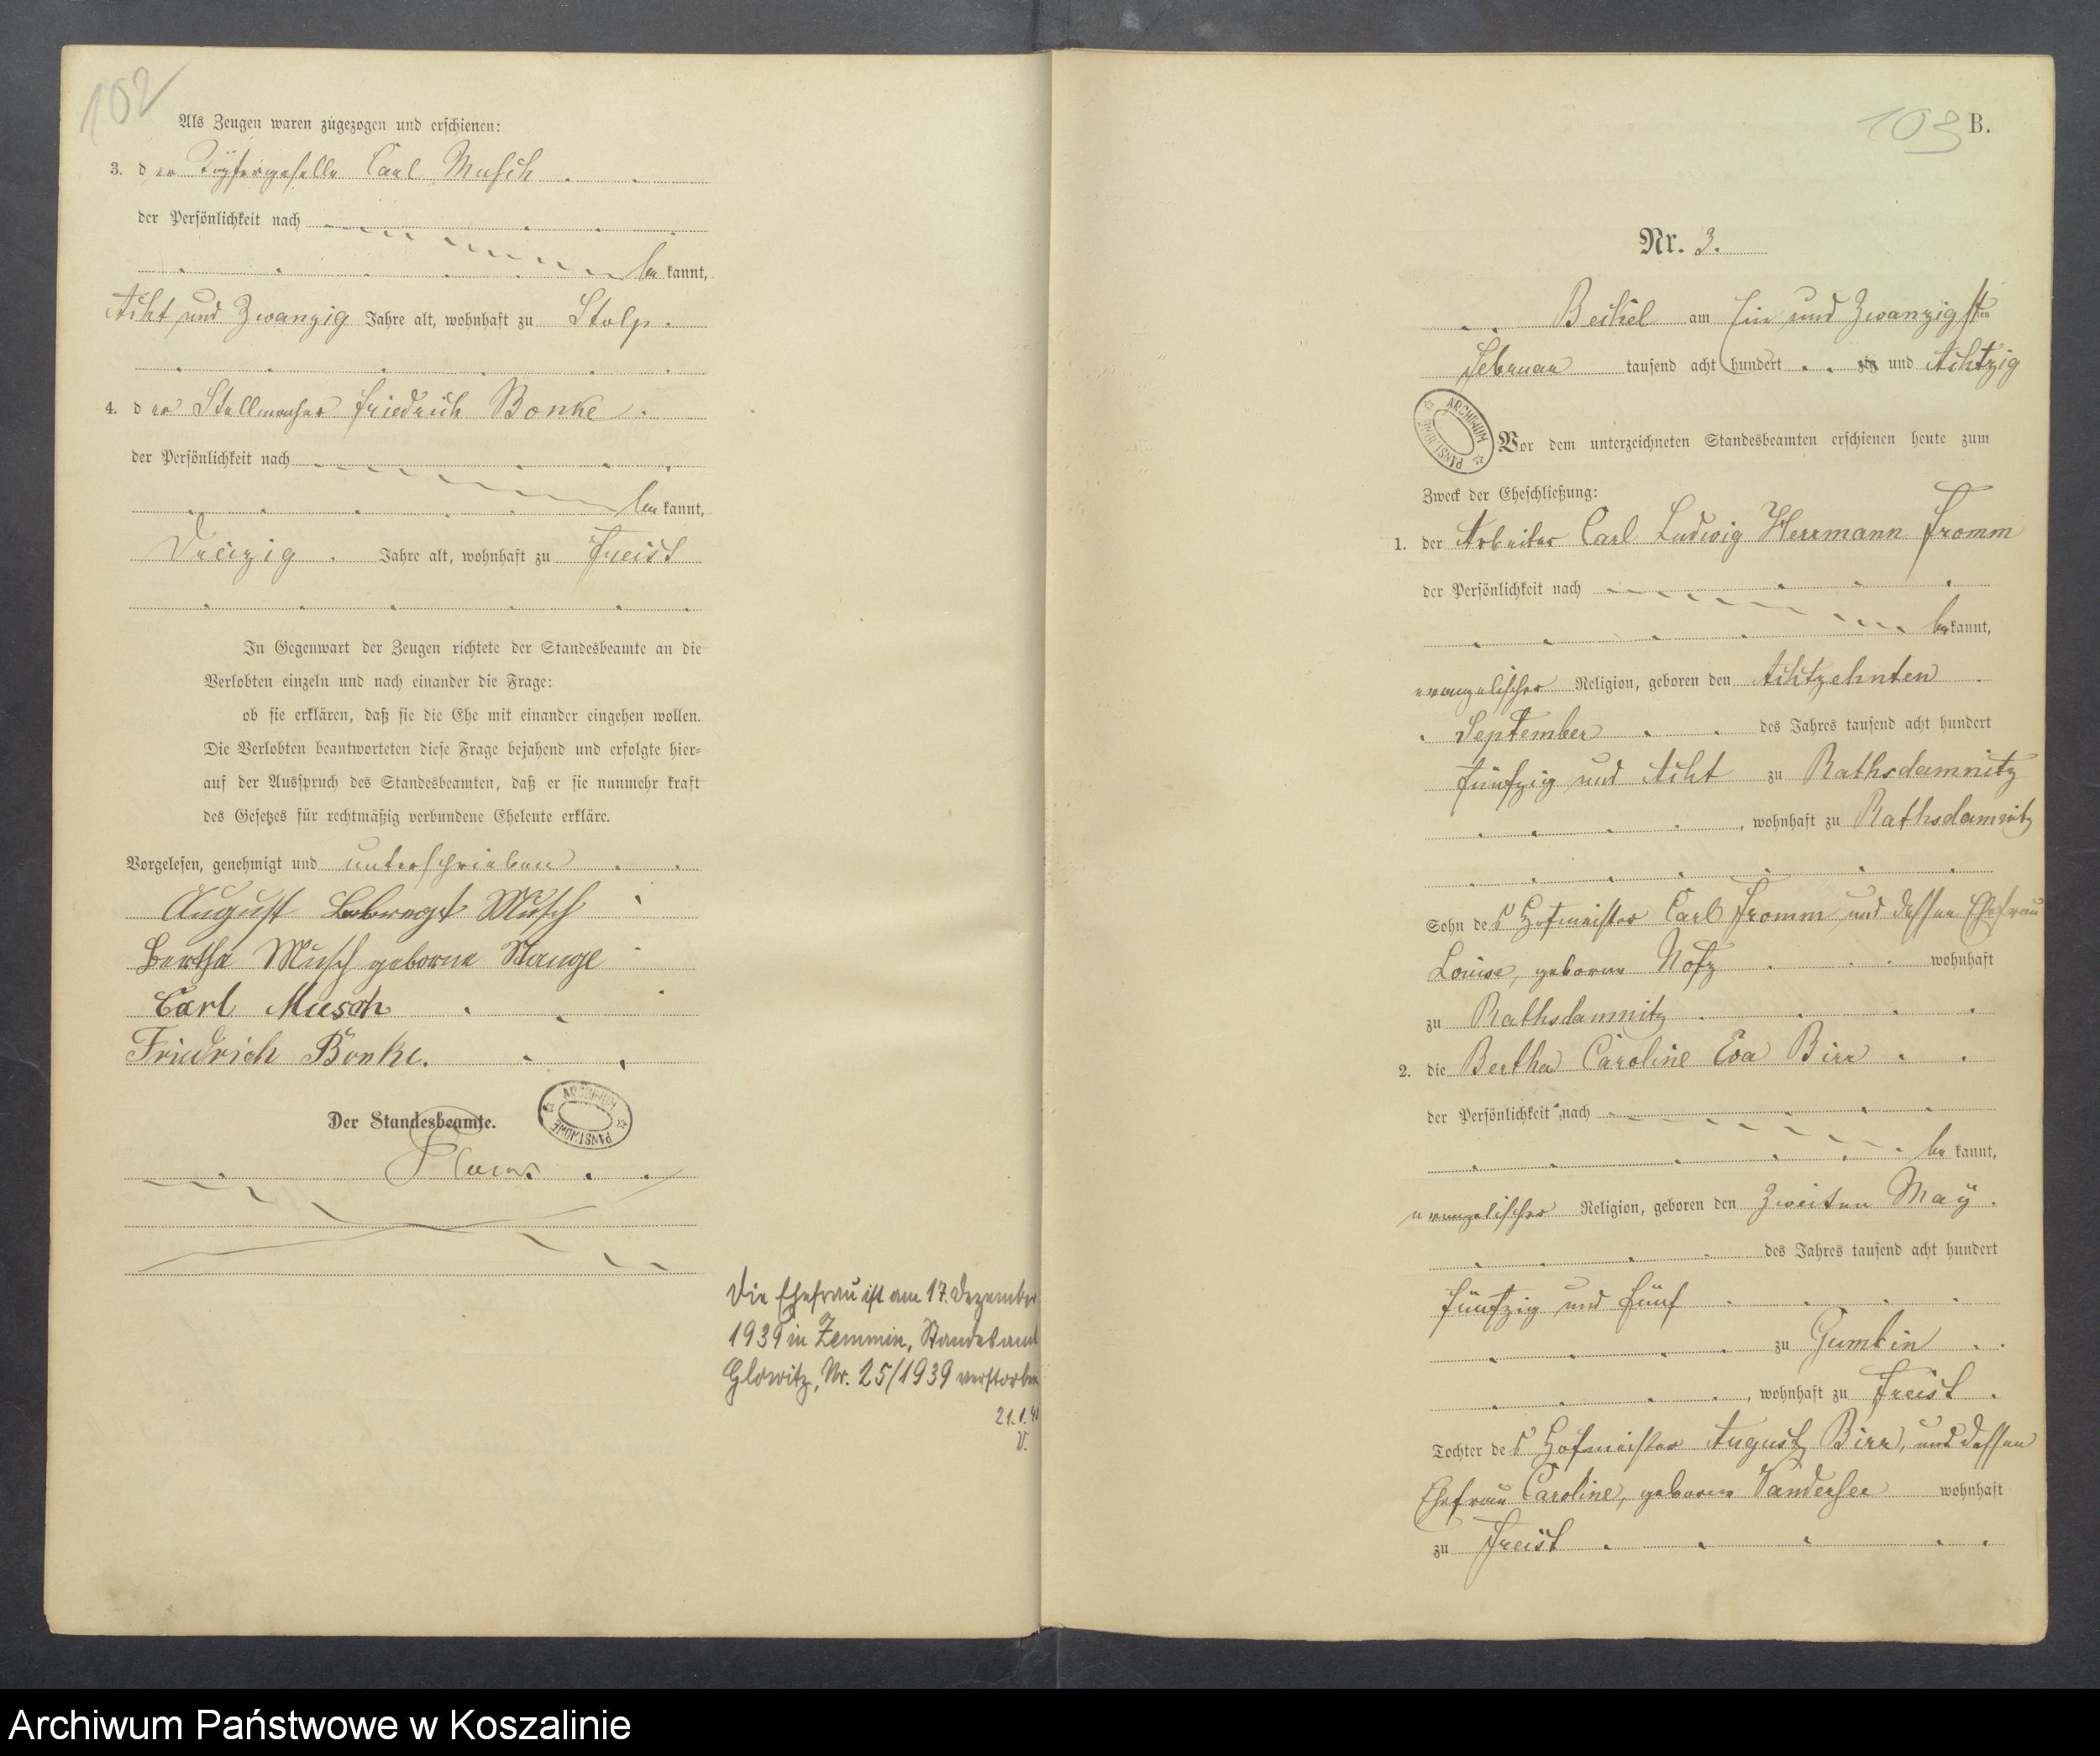 102
Als Zeugen waren zugezogen und erschienen:
3. der Töpfergeselle Carl Musch
der Persönlichkeit nach
be kannt,
Acht und Zwanzig Jahre alt, wohnhaft zu Stolp.
4. der Stellmacher Friedrich Bonke.
der Persönlichkeit nach
be kannt,
Dreizig. Jahre alt, wohnhaft zu Freist
In Gegenwart der Zeugen richtete der Standesbeamte an die
Verlobten einzeln und nach einander die Frage:
ob sie erklären, daß sie die Ehe mit einander eingehen wollen.
Die Verlobten beantworteten diese Frage bejahend und erfolgte hier-
auf der Ausspruch des Standesbeamten, daß er sie nunmehr kraft
des Gesetzes für rechtmäßig verbundene Eheleute erkläre.
Vorgelesen, genehmigt und unterschrieben
August Musch
Bertha Musch geborne Stange
Carl Musch
Friedrich Bonke.
Der Standesbeamte.
ARCHIWUM PAŃSTWOWE
Die Ehefrau ist am 17. Dezember
1939 in Zemmin, Standesamt
Glowitz, Nr. 25/1939 verstorben
21.1.40
V.
103 B.
Nr. 3.
Beckel am Ein und Zwanzigsten
Februar tausend acht hundert zig und Achtzig
ARCHIWUM PAŃSTWOWE
Vor dem unterzeichneten Standesbeamten erschienen heute zum
Zweck der Eheschließung:
1. der Arbeiter Carl Ludwig Herrmann Fromm
der Persönlichkeit nach
be kannt,
evangelischer Religion, geboren den Achtzehnten
September des Jahres tausend acht hundert
fünfzig und Acht zu Rathsdamnitz
, wohnhaft zu Rathsdamnitz
Sohn des Hofmeister Carl Fromm und dessen Ehefrau
Louise, geborne Notz wohnhaft
zu Rathsdamnitz
2. die Bertha Caroline Eva Birr
der Persönlichkeit nach
be kannt,
evangelischer Religion, geboren den Zweiten May.
des Jahres tausend acht hundert
fünfzig und fünf
zu Gumbin
, wohnhaft zu Freist.
Tochter des Hofmeister August Birr, und dessen
Ehefrau Caroline, geborne Sanderser wohnhaft
zu Freist
Archiwum Państwowe w Koszalinie